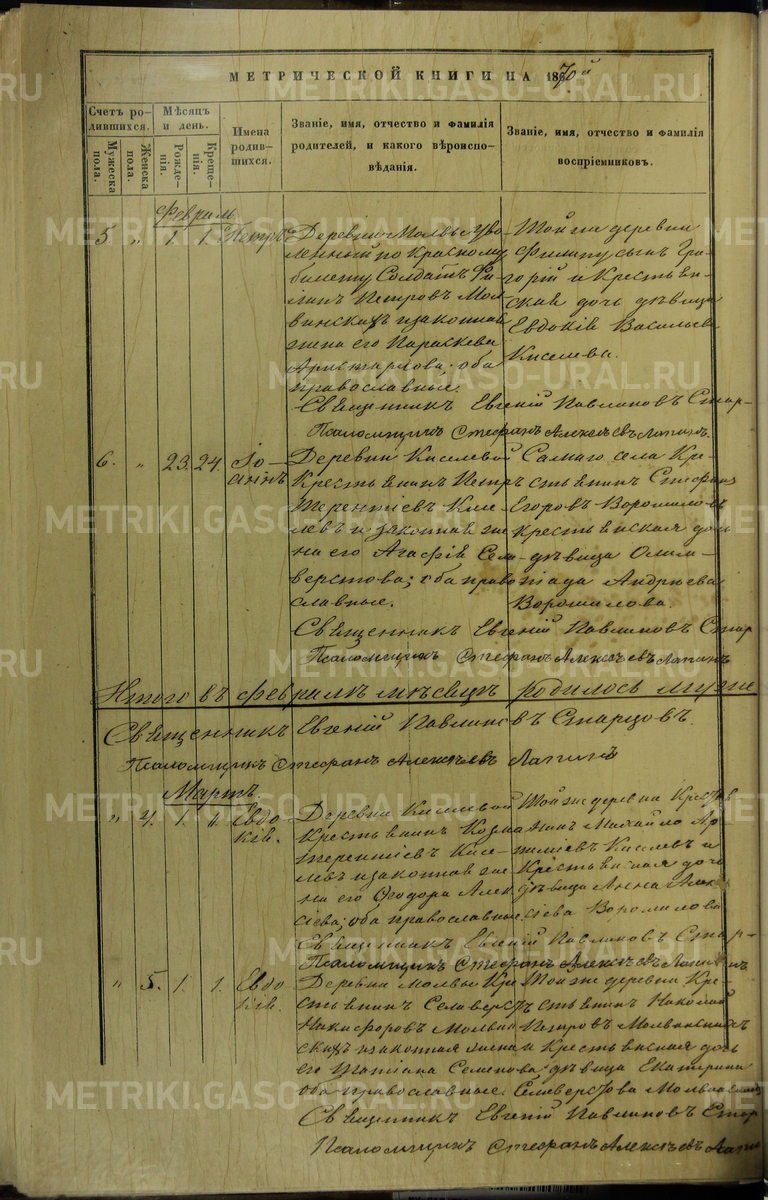 МЕТРИЧЕСКОЙ КНИГИ НА 1870й
Счетъ родившихся.
Мужеска пола.
Женска пола.
Мѣсяцъ и день.
Рожденія.
Крещенія.
Имена родившихся.
Званіе, имя, отчество и фамилія родителей, и какого вѣроисповѣданія.
Званіе, имя, отчество и фамилія воспріемниковъ.
Февраль
5 " 1. 1. Петръ
Деревни Молвы уво-
ленный по красному
билету Солдатъ Фи-
липъ Петровъ Мол-
винскихъ и законная
жена его Параскева
Аристархова; оба
православные.
Той же деревни
Филипу сынъ Гри-
горій и Крестьян-
ская дочь дѣвица
Евдокія Васильева
Киселева.
Священникъ Евгеній Павлиновъ Стар-
Псаломщикъ Стефанъ Алексѣевъ Лапинъ
6. " 23. 24. Іо-
аннъ
Деревни Киселевой
Крестьянинъ Петръ
Терентіевъ Кисе-
левъ и законная же-
на его Агафія Сели-
верстова; оба право-
славные.
Самаго села Кре-
стьянинъ Стефанъ
Егоровъ Ворошиловъ
и крестьянская дочь
дѣвица Олимпіада Андреева
Ворошилова.
Священникъ Евгеній Павлиновъ Стар
Псаломщикъ Стефанъ Алексѣевъ Лапинъ
Итого въ февралѣ мѣсяцѣ родилось муже
Священникъ Евгеній Павлиновъ Старцовъ.
Псаломщикъ Стефанъ Алексѣевъ Лапинъ
Мартъ
" 4. 1. 1. Евдо-
кія.
Деревни Киселевой
Крестьянинъ Козма
Терентіевъ Кисе-
левъ и законная же-
на его Феодора Алек-
сіева; оба православные
Той же деревни Кресть
янинъ Михайло Ар-
Киселевъ и
Крестьянская дочь
дѣвица Анна Алек-
сіева Ворошилова
Священникъ Евгеній Павлиновъ Стар-
Псаломщикъ Стефанъ Алексѣевъ Лапинъ
" 5. 1. 1. Евдо
кія.
Деревни Молвы Кре
стьянинъ Селиверстъ
Никифоровъ Молвин
скихъ и законная жена
его Татіана Семенова
оба православные.
Той же деревни Кре-
стьянинъ Николай
Петровъ Молвинскихъ
и Крестьянская дочь
дѣвица Екатерина
Селиверстова Молвинскихъ
Священникъ Евгеній Павлиновъ Стар
Псаломщикъ Стефанъ Алексѣевъ Лапи
METRIKI.GASO-URAL.RU